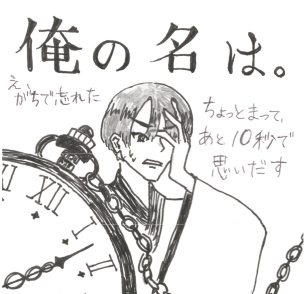 俺の名は。
え
がちで忘れた
ちょっとまって、
あと10秒で
思いだす
XII